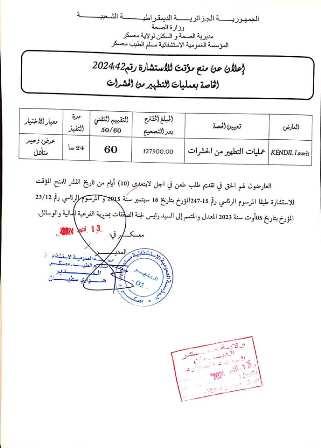 الجمهورية الجزائرية الديمقراطية الشعبية
وزارة الصحة
مديرية الصحة و السكان لولاية معسكر
المؤسسة العمومية الاستشفائية مسلم الطيب معسكر
إعلان عن منح مؤقت للاستشارة رقم 2024/42
الخاصة بعمليات التطهير من الحشرات
العارض | تعيين الحصة | المبلغ المقترح بعد التصحيح | التقييم التقني 50/60 | مدة التنفيذ | معيار الاختيار
KENDIL | عمليات التطهير من الحشرات | 127500.00 | 60 | 24 سا | عرض وحيد متأهل
العارضون لهم الحق في تقديم طلب طعن في اجل لايتعدى (10) أيام من تاريخ النشر للمنح المؤقت
للاستشارة طبقا المرسوم الرئاسي رقم 15-247 المؤرخ بتاريخ 16 سبتمبر سنة 2015 و المرسوم الرئاسي رقم 23/12
المؤرخ بتاريخ 05 أوت سنة 2023 المعدل والمتمم إلى السيد رئيس لجنة الصفقات بمديرية الفرعية المالية والوسائل.
معسكر في
المدير